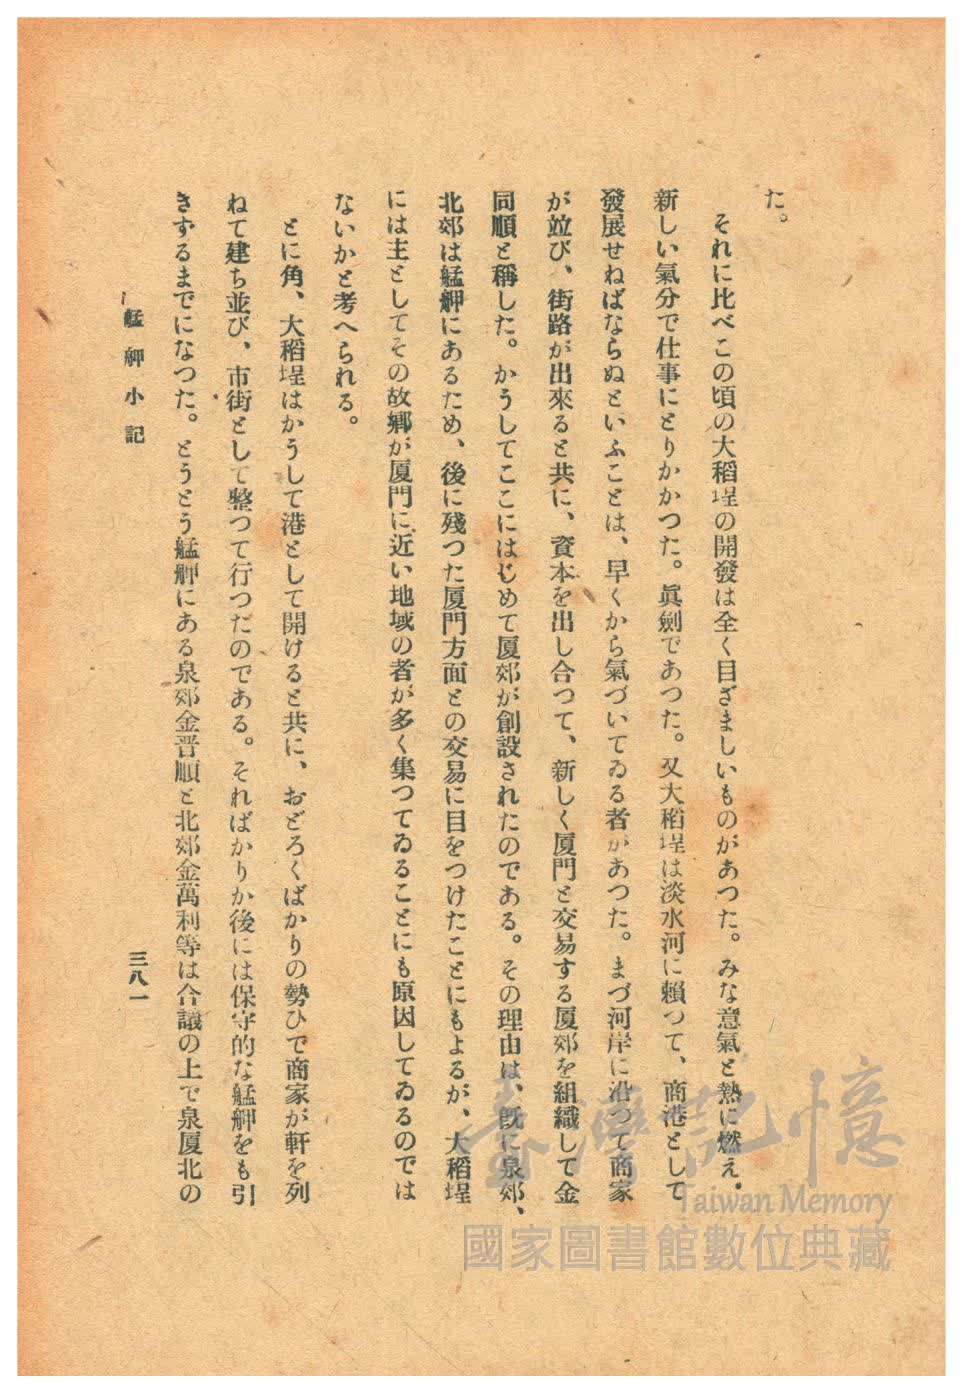 た。
それに比べこの頃の大稻埕の開發は全く目ざましいものがあつた。みな意氣と熱に燃え、
新しい氣分で仕事にとりかかつた。眞劍であつた。又大稻埕は淡水河に賴つて、商港として
發展せねばならぬといふことは、早くから氣づいてゐる者があつた。まづ河岸に沿つて商家
が並び、街路が出來ると共に、資本を出し合つて、新しく厦門と交易する厦郊を組織して金
同順と稱した。かうしてここにはじめて厦郊が創設されたのである。その理由は、既に泉郊、
北郊は艋舺にあるため、後に殘つた厦門方面との交易に目をつけたことにもよるが、大稻埕
には主としてその故鄕が厦門に近い地域の者が多く集つてゐることにも原因してゐるのでは
ないかと考へられる。
とに角、大稻埕はかうして港として開けると共に、おどろくばかりの勢ひで商家が軒を列
ねて建ち並び、市街として整つて行つだのである。そればかりか後には保守的な艋舺をも引
きずるまでになつた。とうとう艋舺にある泉郊金晋順と北郊金萬利等は合議の上で泉厦北の
艋舺小記
三八一
臺灣記憶
Taiwan Memory
國家圖書館數位典藏